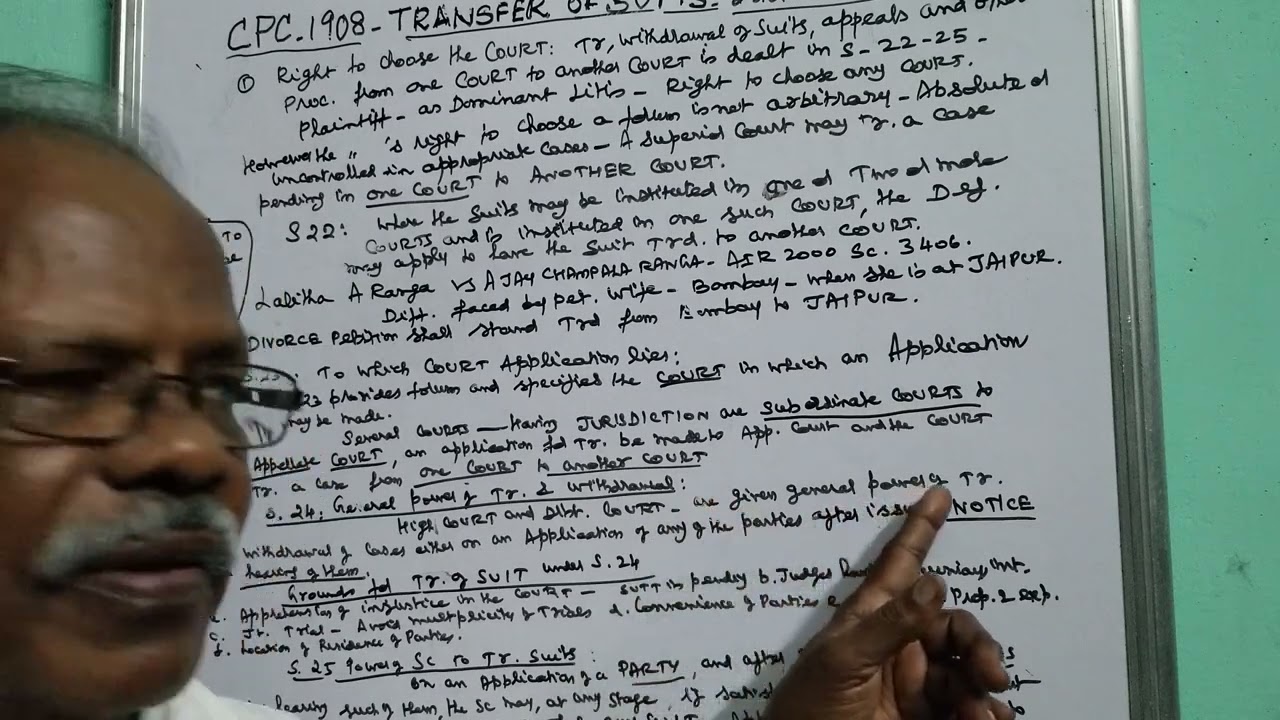 CPC.1908 - TRANSFER OF SUITS.
① Right to choose the COURT: Tr, withdrawal of Suits, appeals and other
Proc. from one COURT to another COURT is dealt in S-22-25-
Plaintiff - as Dominant Litis - Right to choose any COURT.
However the " 's right to choose a forum is not arbitrary - Absolute or
uncontrolled in appropriate cases - A superior Court may Tr. a case
pending in one COURT to ANOTHER COURT.
S 22: where the suits may be instituted in one of Two or more
COURTS and is instituted in one such COURT, the Def.
may apply to have the suit Trd. to another COURT.
Lalitha A Ranga VS AJAY CHAMPALA RANGA - AIR 2000 SC. 3406.
Diff. faced by pet. wife - Bombay - when she is at JAIPUR.
DIVORCE Petition shall stand Trd from Bombay to JAIPUR.
: To which COURT Application lies:
23 provides forum and specifies the COURT in which an Application
may be made.
Several COURTS - Having JURISDICTION are subordinate COURTS to
Appellate COURT, an application for Tr. be made to App. Court and the COURT
Tr. a case from one COURT to another COURT
S. 24: General power of Tr. & withdrawal:
High COURT and Dist. COURT - are given general power of Tr.
withdrawal of cases either on an Application of any of the parties after NOTICE
hearing of them.
Grounds for Tr. of SUIT under S.24
a. Apprehension of injustice in the COURT - SUIT is pending b. Judges Int.
c. Jt. Trial - Avoid multiplicity of Trials d. Convenience of Parties e Prop. & exp.
f. Location of Residence of Parties.
S. 25 Power of SC to Tr. Suits:
on an Application of a PARTY, and after
hearing such of them, the SC may, at any stage, if satisf
TO